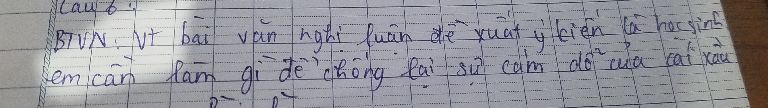 Câu 6:
BTVN: VT bài văn nghị luận đề xuất ý kiến là học sinh
em cần làm gì để chống lại sự cám dỗ của cái xấu